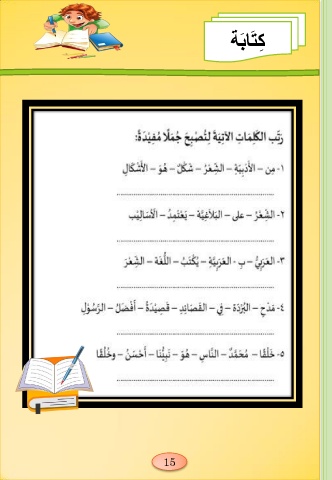 كِتَابَة
رَتِّب الكَلِمَاتِ الآتِيَةَ لِتُصْبِحَ جُمَلًا مُفِيْدَةً:
١- مِن – الأَدَبِيَّةِ – الشِّعْرُ – شَكْلٌ – هُوَ – الأَشْكَالِ
٢- الشِّعْرُ – على – البَلَاغِيَّة – يَعْتَمِدُ – الأَسَالِيْب
٣- العَرَبِيُّ – بِ - العَرَبِيَّةِ – يُكْتَبُ – اللُّغَة – الشِّعْرَ
٤- مَدْحِ – البُرْدَة – فِي – القَصَائِدِ – قَصِيْدَةُ – أَفْضَلُ – الرَّسُوْلِ
٥- خَلْقًا – مُحَمَّدٌ – النَّاسِ – هُوَ – نَبِيُّنَا – أَحْسَنُ – وخُلُقًا
15